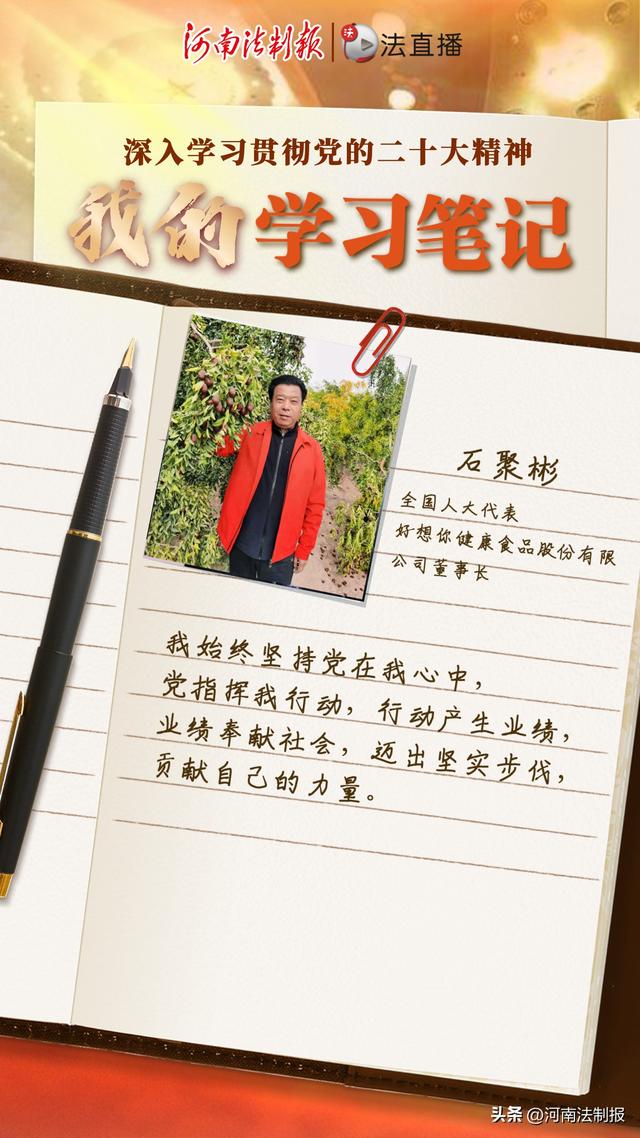 河南法制报 法直播
深入学习贯彻党的二十大精神
我的学习笔记
石聚彬
全国人大代表
好想你健康食品股份有限
公司董事长
我始终坚持党在我心中，
党指挥我行动，行动产生业绩，
业绩奉献社会，迈出坚实步伐，
贡献自己的力量。
头条 @河南法制报